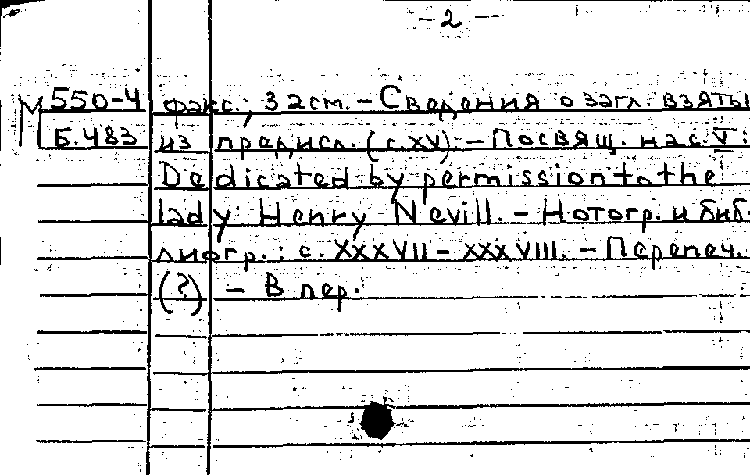 — 2 —
М 550-4 факс.; 32см. – Сведения о загл. взяты
Б.483 из предисл. (с.XV). – Посвящ. на с.V:
Dedicated by permission to the
lady Henry Nevill. – Нотогр. и биб-
лиогр.: с. XXXVII – XXXVIII. – Перепеч.
(?) – В пер.